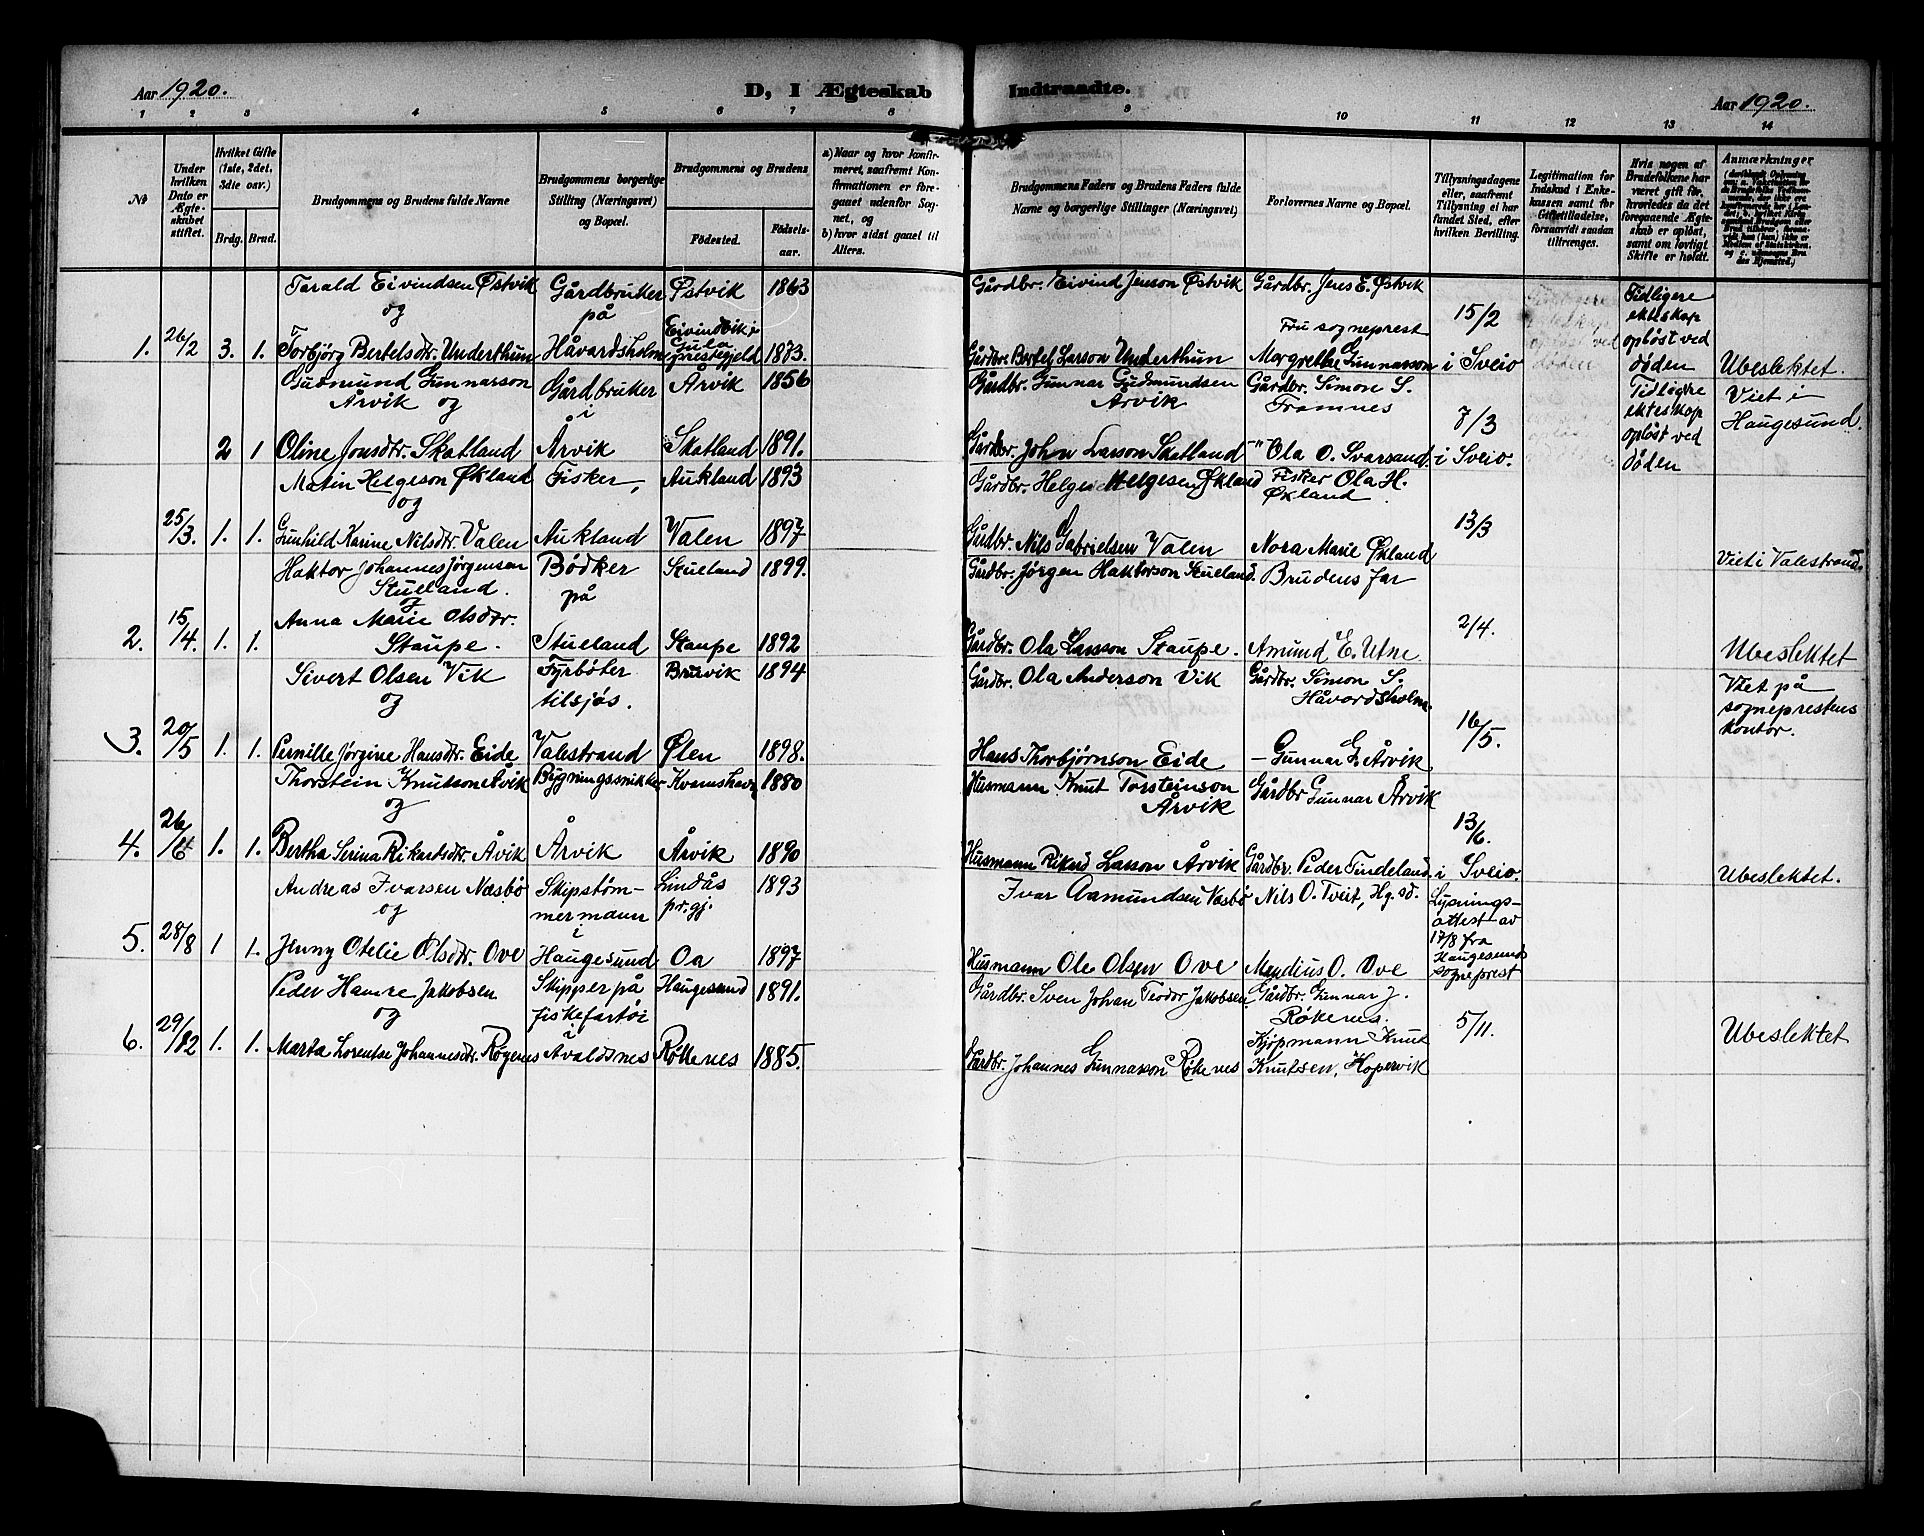 Aar 1920.
D, I Ægteskab Indtraadte.
Aar 1920.
1 2 3 4 5 6 7 8 9 10 11 12 13 14
No
Under hvilken Dato er Ægteskabet stiftet.
Hvilket Gifte (1ste, 2det, 3die osv.)
Brdg. Brud.
Brudgommens og Brudens fulde Navne
Brudgommens borgerlige Stilling (Næringsvei) og Bopæl.
Brudgommens og Brudens
Fødested.
Fødselsaar.
a) Naar og hvor konfirmeret, saafremt Konfirmationen er foregaaet udenfor Sognet, og
b) hvor sidst gaaet til Alters.
Brudgommens Faders og Brudens Faders fulde Navne og borgerlige Stillinger (Næringsvei)
Forlovernes Navne og Bopæl.
Tillysningsdagene eller, saafremt Tillysning ei har fundet Sted, efter hvilken Bevilling.
Legitimation for Indskud i Enkekassen samt for Giftetilladelse, forsaavidt saadan tiltrænges.
Hvis nogen af Brudefolkene har været gift før, hvorledes da det foregaaende Ægteskab er opløst, samt om lovligt Skifte er holdt.
Anmærkninger
Tarald Eivindsen Østvik Gårdbruker Østvik 1863 Gårdbr. Eivind Jenson Østvik Gårdbr. Jens E. Østvik
og på Eivindvik i
1. 26/2 3. 1. Torbjørg Bertelsdtr. Underthun Håvardsholm Gula prestegjeld 1873. Gårdbr. Bertel Larson Underthun Fru sogneprest Margrethe Gunnarson 15/2 i Sveio Tidligere ekteskap opløst ved døden Ubeslektet.
Gudmund Gunnarson Årvik og Gårdbruker i Årvik 1856 Gårdbr. Gunnar Gudmundsen Årvik Gårdbr. Simon S. Framnes
2 1 Oline Jonsdtr. Skatland Årvik Skatland 1891. Gårdbr. John Larson Skatland -"- Ola O. Svarsand 7/3 i Sveio. Tidligere ekteskap opløst ved døden Viet i Haugesund.
Matin Helgeson Økland og Fisker, Aukland 1893 Gårdbr. Helge Helgesen Økland Fisker Ola H. Økland
25/3. 1. 1. Gunhild Karine Nilsdtr. Valen Aukland Valen 1897 Gårdbr. Nils Gabrielsen Valen Nora Marie Økland 13/3 Viet i Valestrand.
Haktor Johannes Jørgensen Stueland. og Bødker på Stueland 1899. Gårdbr. Jørgen Haktorson Stueland. Brudens far
2. 15/4. 1. 1. Anna Marie Olsdtr. Staupe. Stueland Staupe 1892 Gårdbr. Ola Larsson Staupe. Amund E. Utne 2/4. Ubeslektet
Sivert Olsen Vik og Fyrbøter tilsjøs. Bruvik 1894 Gårdbr. Ola Anderson Vik Gårdbr. Simon S. Håvardsholm
3. 20/5 1. 1. Pernille Jørgine Hansdtr. Eide Valestrand Ølen 1898. Hans Thorbjørnson Eide - Gunnar G. Årvik 16/5. Viet på sogneprestens kontor.
Thorstein Knutson Årvik og Bygningssnikker 1880 Husmann Knut Torsteinson Årvik Gårdbr Gunnar Årvik
4. 26/6 1. 1. Bertha Serina Rikardsdtr. Åvik Årvik Årvik 1890 Husmann Rikard Larson Årvik Gårdbr. Peder Tindeland 13/6. i Sveio. Ubeslektet.
Andreas Ivarsen Næsbø og Skipstømmermann i Lindås pr.gj. 1893 Ivar Aamundsen Næsbø Nils O. Tveit, Hg.sd.
5. 28/8 1 1. Jenny Otelie Olsdtr. Ove Haugesund Oa 1897 Husmann Ole Olsen Ove Mendius O. Ove Lysningsattest av 17/8 fra Haugesunds sogneprest
Peder Hamre Jakobsen og Skipper på fiskefartøi i Haugesund 1891. Gårdbr. Sven Johan Teodor Jakobsen Gårdbr. Gunnar J. Røkenes.
6. 29/12 1. 1. Marta Lorentse Johannesdtr. Røgenes Avaldsnes Røkenes 1885. Gårdbr. Johannes Gunnarson Røkenes Kjøpmann Knut Knutsen, Kopervik 5/11. Ubeslektet